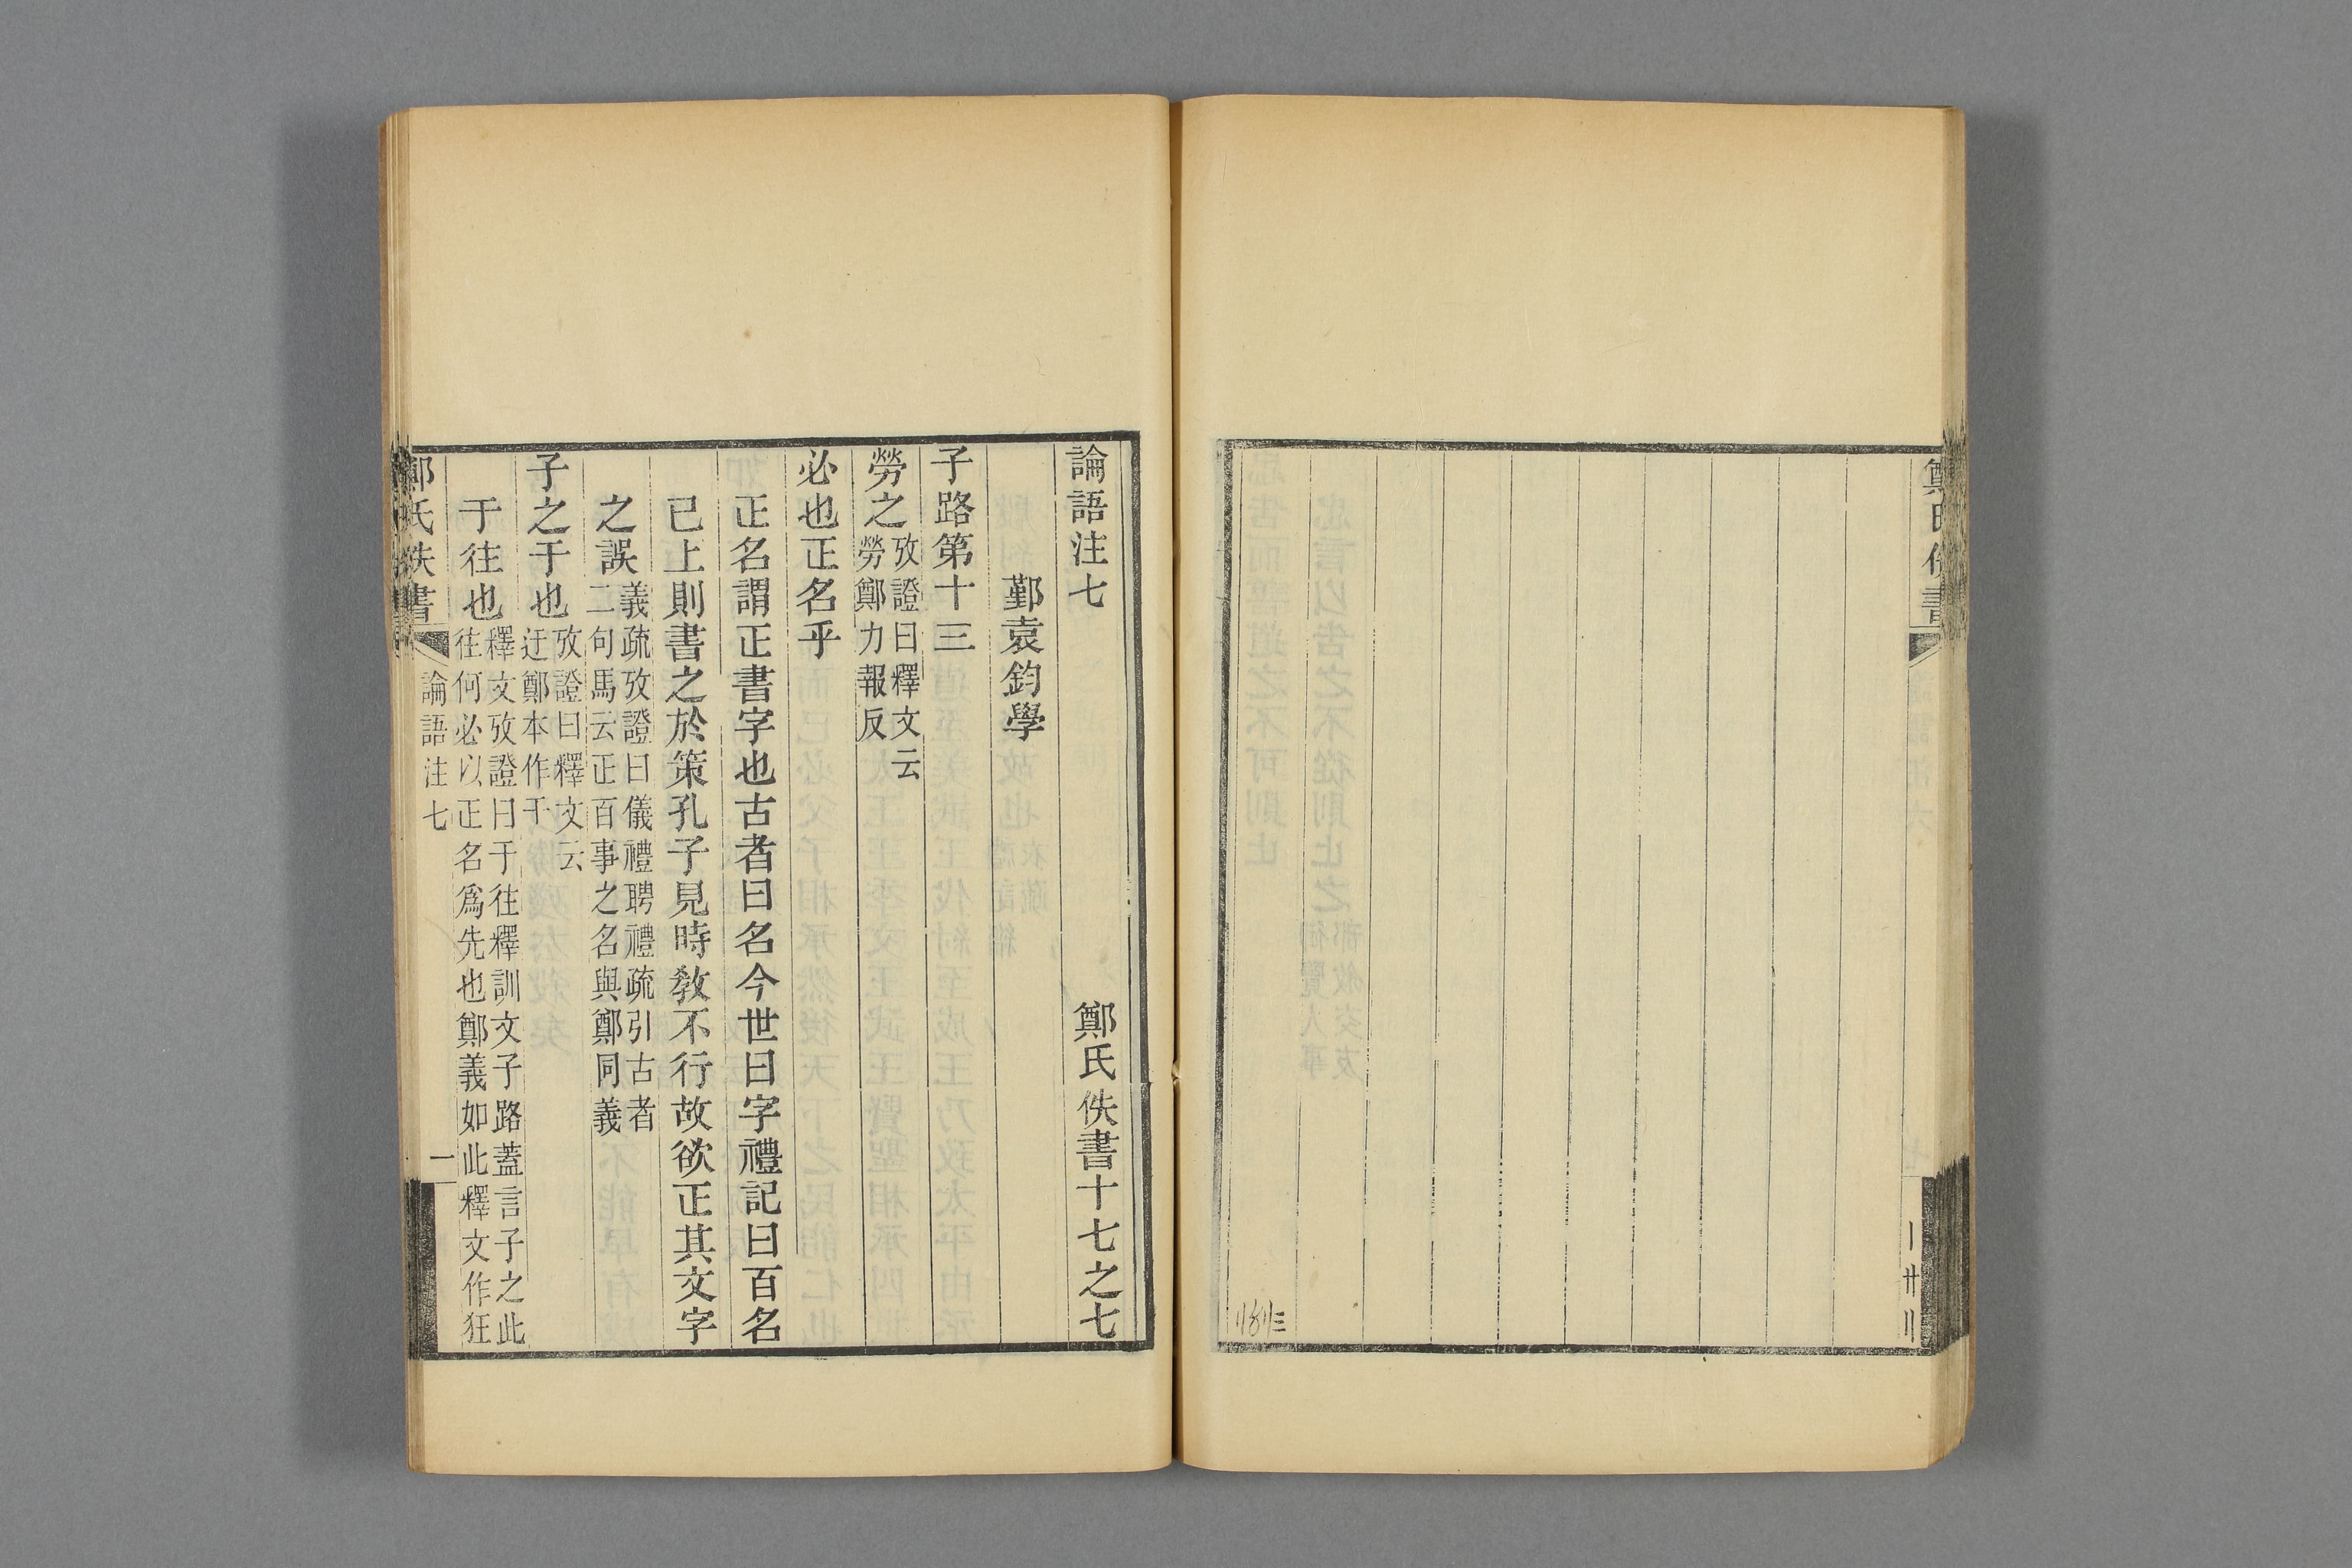 論語注七　鄭氏佚書十七之七
鄞袁鈞學
子路第十三
勞之攷證曰釋文云
勞鄭力報反
必也正名乎
正名謂正書字也古者曰名今世曰字禮記曰百名
已上則書之於策孔子見時敎不行故欲正其文字
之誤義疏攷證曰儀禮聘禮疏引古者
二句馬云正百事之名與鄭同義
子之于也攷證曰釋文云
迂鄭本作于
于往也釋文攷證曰于往釋訓文子路蓋言子之此
往何必以正名爲先也鄭義如此釋文作狂
鄭氏佚書　論語注七　一